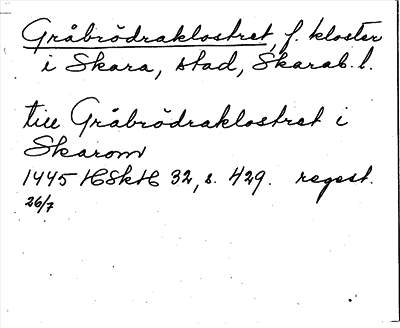 Gråbrödraklostret, f. kloster
i Skara, stad, Skarab. l.
till Gråbrödraklostret i
Skarom
1445 HSkH 32, s. 429. regest.
26/7